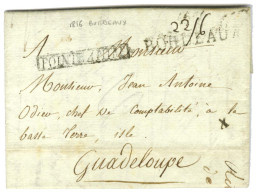 1816 BORDEAUX
23/6
POINTE A PITRE BORDEAUX
A Monsieur
Monsieur, Jean Antoine
Odieu, chef de Comptabilité, a la
basse terre, isle
Guadeloupe